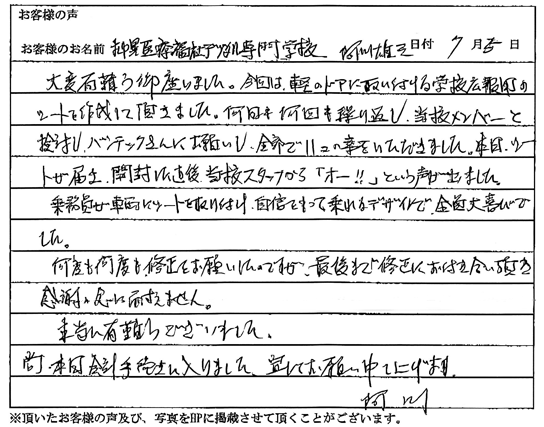 お客様の声
お客様のお名前 科学医療福祉 専門学校 阿川雄 日付 7月5日
大変有難う御座いました。今回は、車のドアに取り付ける学校広報用の
シートを作成して頂きました。何回も何回も繰り返し、当校メンバーと
検討し、バンテックさんにお願いし、全部で11コの案をいただきました。本日、シー
トが届き、開封した直後当校スタッフから「オー!!」という声が出ました。
乗務員が車両にシートを取り付け、自信をもって乗れるデザインで、全員大喜びで
した。
何度も何度も修正をお願いしたのですが、最後まで修正にお付き合い頂き
感謝の念に耐えません。
本当に有難うございました。
尚、本日会計手続きに入りました、宜しくお願い申し上げます。
阿川
※頂いたお客様の声及び、写真をHPに掲載させて頂くことがございます。